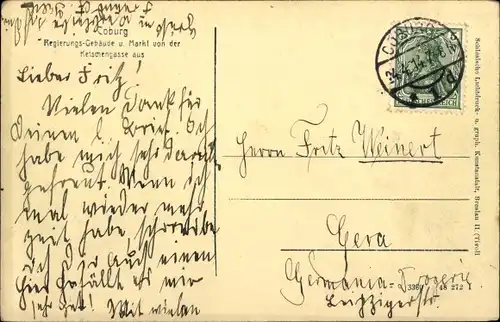 Coburg
Regierungs-Gebäude u. Markt von der
Ketschengasse aus
Lieber Fritz!
Vielen Dank für
Deinen l. Brief. Ich
habe mich sehr darüber
gefreut. Wenn ich
mal wieder mehr
Zeit habe, schreibe
ich Dir auf einen
Hier gefällt es mir
sehr gut! Mit vielen
COBURG
Herrn Fritz Weinert
Gera
Germania-Drogerie
Leipzigerstr.
3360 48 272
Schlesische Lichtdruck- u. graph. Kunstanstalt, Breslau II (Tivoli